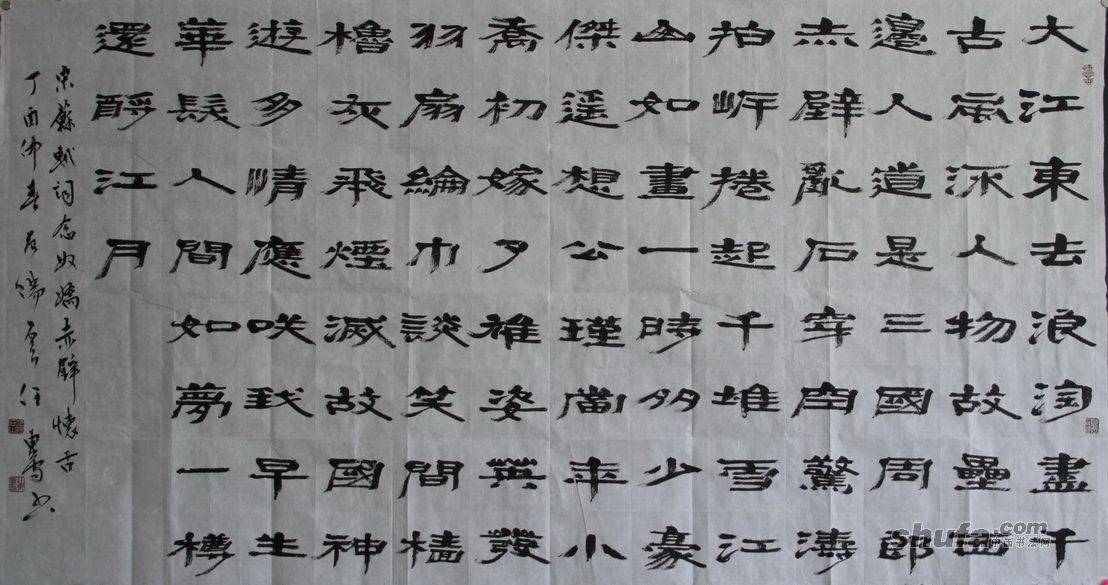 大江東去浪淘盡千
古風流人物故壘西
邊人道是三國周郎
赤壁亂石穿空驚濤
拍岸捲起千堆雪江
山如畫一時多少豪
傑遥想公瑾當年小
喬初嫁了雄姿英發
羽扇綸巾談笑間檣
櫓灰飛煙滅故國神
遊多情應笑我早生
華髮人間如夢一樽
還酹江月
宋蘇軾詞念奴嬌赤壁懷古
丁酉
shufa.com